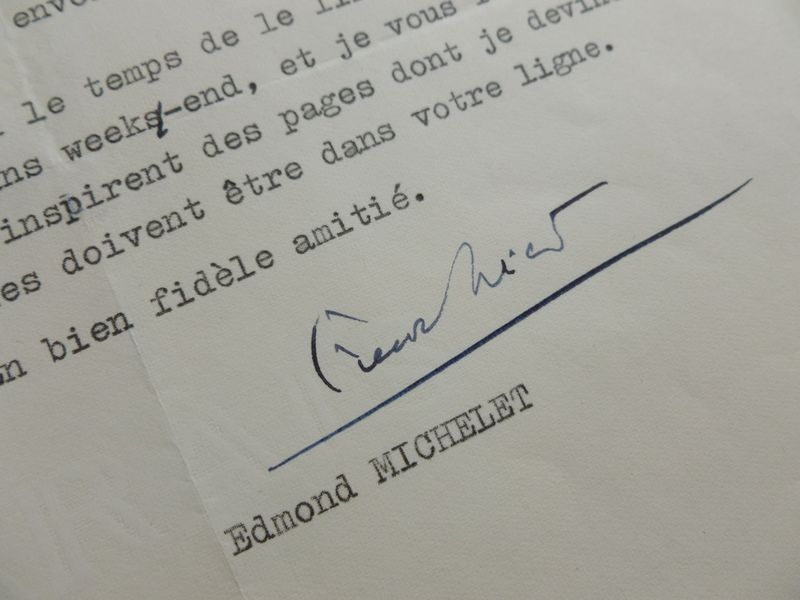 envo
le temps de le li
ns week-end, et je vous
inspirent des pages dont je devin
es doivent être dans votre ligne.
n bien fidèle amitié.
Edmond MICHELET